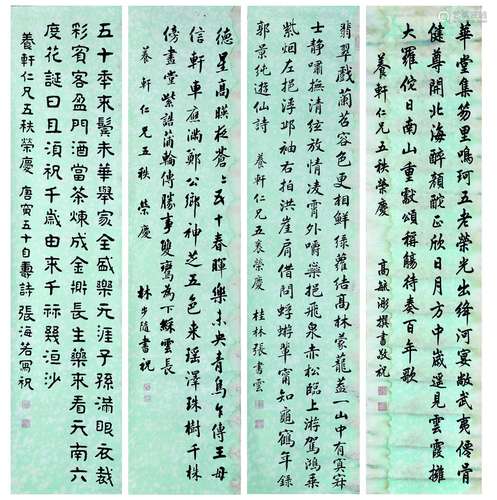 華堂集笏里鳴珂五老榮光出絳河宴敞武夷僊骨
健尊開北海醉顔酡正欣日月方中嵗遥見雲霞擁
大羅佗日南山重獻頌稱觴待奏百年歌
養軒仁兄五秩榮慶 高毓浵撰書敬祝
翡翠戲蘭苕容色更相鮮綠蘿結高林蒙蘢蓋一山中有冥寂
士静嘯撫清弦放情凌霄外嚼蘂挹飛泉赤松臨上游駕鴻乘
紫烟左挹浮邱袖右拍洪崖肩借問蜉蝣輩甯知龜鶴年錄
郭景純遊仙詩 養軒仁兄五袠榮慶 桂林張書雲
德星高暎極蒼々五十春暉樂未央青鳥乍傳王母
信軒車應滿鄭公鄉神芝五色來瑶澤珠樹千株
傍畫堂紫誥蒲輪傳勝事雙鸞為下綵雲長
養軒仁兄五秩榮慶 林步随書祝
五十季來鬢未華舉家全盛樂无涯子孫滿眼衣裁
彩賓客盈門酒當茶煉成金長生藥來看元南六
度花誕日且須祝千歲由來千祘幾洹沙
養軒仁兄五秩榮慶 唐寅五十自壽詩 張海若寫祝